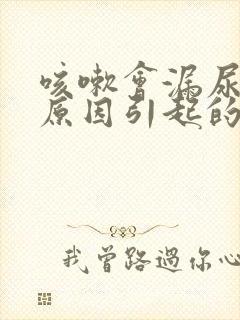 咳嗽會漏尿
原因引起的
我曾路過你心